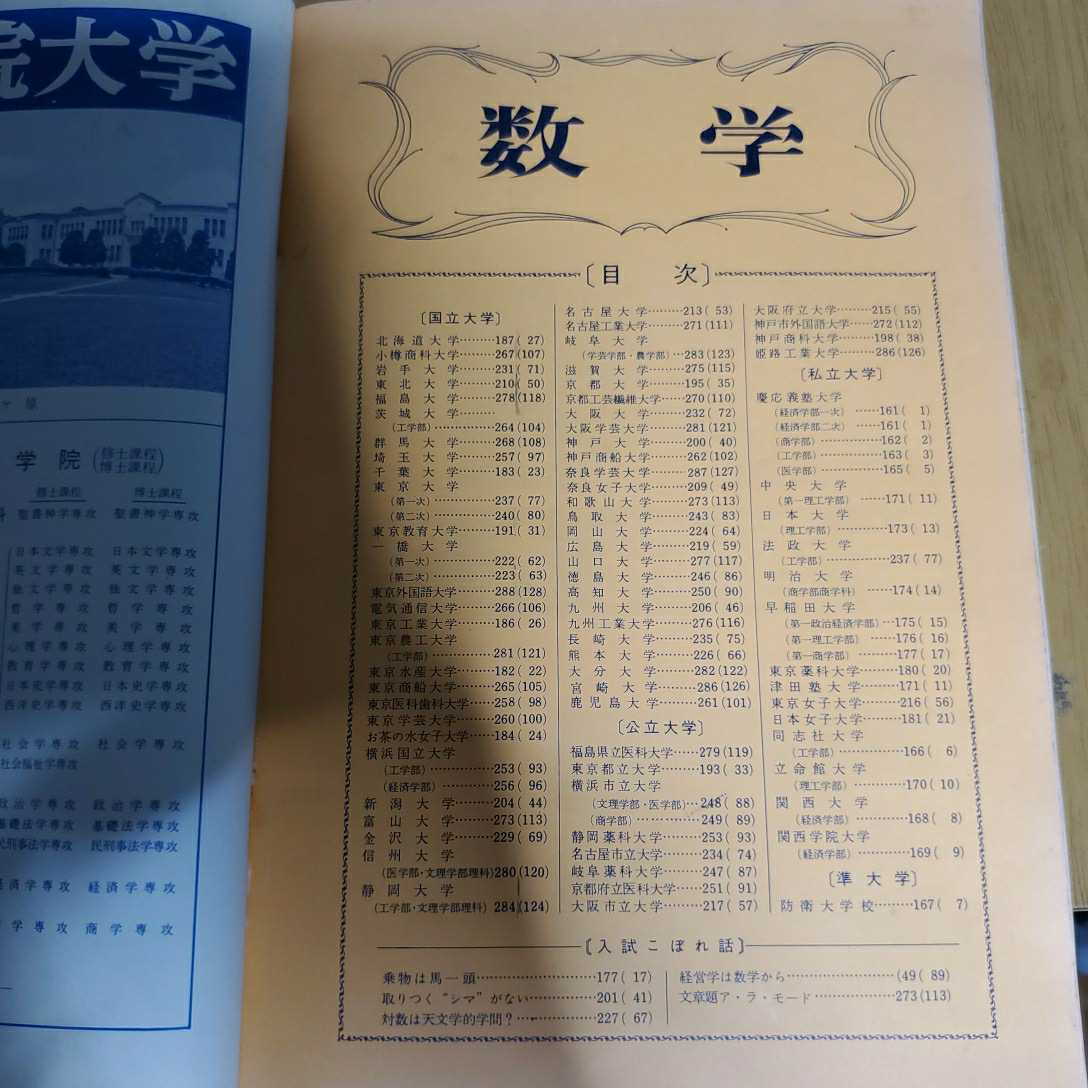 院大学
ヶ原
学院(修士課程 博士課程)
修士課程 博士課程
聖書神学専攻 聖書神学専攻
日本文学専攻 日本文学専攻
英文学専攻 英文学専攻
独文学専攻 独文学専攻
哲学専攻 哲学専攻
美学専攻 美学専攻
心理学専攻 心理学専攻
教育学専攻 教育学専攻
日本史学専攻 日本史学専攻
西洋史学専攻 西洋史学専攻
社会学専攻 社会学専攻
社会福祉学専攻
政治学専攻 政治学専攻
基礎法学専攻 基礎法学専攻
民刑事法学専攻 民刑事法学専攻
経済学専攻 経済学専攻
学専攻 商学専攻
数学
〔目次〕
〔国立大学〕
北海道大学………187( 27)
小樽商科大学………267(107)
岩手大学………231( 71)
東北大学………210( 50)
福島大学………278(118)
茨城大学………
(工学部)…………264(104)
群馬大学………268(108)
埼玉大学………257( 97)
千葉大学………183( 23)
東京大学
(第一次)…………237( 77)
(第二次)…………240( 80)
東京教育大学………191( 31)
一橋大学
(第一次)…………222( 62)
(第二次)…………223( 63)
東京外国語大学……288(128)
電気通信大学………266(106)
東京工業大学………186( 26)
東京農工大学
(工学部)…………281(121)
東京水産大学………182( 22)
東京商船大学………265(105)
東京医科歯科大学……258( 98)
東京学芸大学………260(100)
お茶の水女子大学……184( 24)
横浜国立大学
(工学部)…………253( 93)
(経済学部)…………256( 96)
新潟大学………204( 44)
富山大学………273(113)
金沢大学………229( 69)
信州大学
(医学部・文理学部理科)280(120)
静岡大学
(工学部・文理学部理科)284(124)
名古屋大学………213( 53)
名古屋工業大学………271(111)
岐阜大学
(学芸学部・農学部)…283(123)
滋賀大学………275(115)
京都大学………195( 35)
京都工芸繊維大学……270(110)
大阪大学………232( 72)
大阪学芸大学………281(121)
神戸大学………200( 40)
神戸商船大学………262(102)
奈良学芸大学………287(127)
奈良女子大学………209( 49)
和歌山大学………273(113)
鳥取大学………243( 83)
岡山大学………224( 64)
広島大学………219( 59)
山口大学………277(117)
徳島大学………246( 86)
高知大学………250( 90)
九州大学………206( 46)
九州工業大学………276(116)
長崎大学………235( 75)
熊本大学………226( 66)
大分大学………282(122)
宮崎大学………286(126)
鹿児島大学………261(101)
〔公立大学〕
福島県立医科大学……279(119)
東京都立大学………193( 33)
横浜市立大学
(文理学部・医学部)…248( 88)
(商学部)…………249( 89)
静岡薬科大学………253( 93)
名古屋市立大学………234( 74)
岐阜薬科大学………247( 87)
京都府立医科大学……251( 91)
大阪市立大学………217( 57)
大阪府立大学………215( 55)
神戸市外国語大学……272(112)
神戸商科大学………198( 38)
姫路工業大学………286(126)
〔私立大学〕
慶応義塾大学
(経済学部一次)……161( 1)
(経済学部二次)……161( 1)
(商学部)…………162( 2)
(工学部)…………163( 3)
(医学部)…………165( 5)
中央大学
(第一理工学部)……171( 11)
日本大学
(理工学部)…………173( 13)
法政大学
(工学部)…………237( 77)
明治大学
(商学部商学科)……174( 14)
早稲田大学
(第一政治経済学部)…175( 15)
(第一理工学部)……176( 16)
(第一商学部)………177( 17)
東京薬科大学………180( 20)
津田塾大学………171( 11)
東京女子大学………216( 56)
日本女子大学………181( 21)
同志社大学
(工学部)…………166( 6)
立命館大学
(理工学部)…………170( 10)
関西大学
(経済学部)…………168( 8)
関西学院大学
(経済学部)…………169( 9)
〔準大学〕
防衛大学校………167( 7)
〔入試こぼれ話〕
乗物は馬一頭………………177( 17)
取りつく“シマ”がない…………201( 41)
対数は天文学的学問?…………227( 67)
経営学は数学から………………(49( 89)
文章題ア・ラ・モード…………273(113)